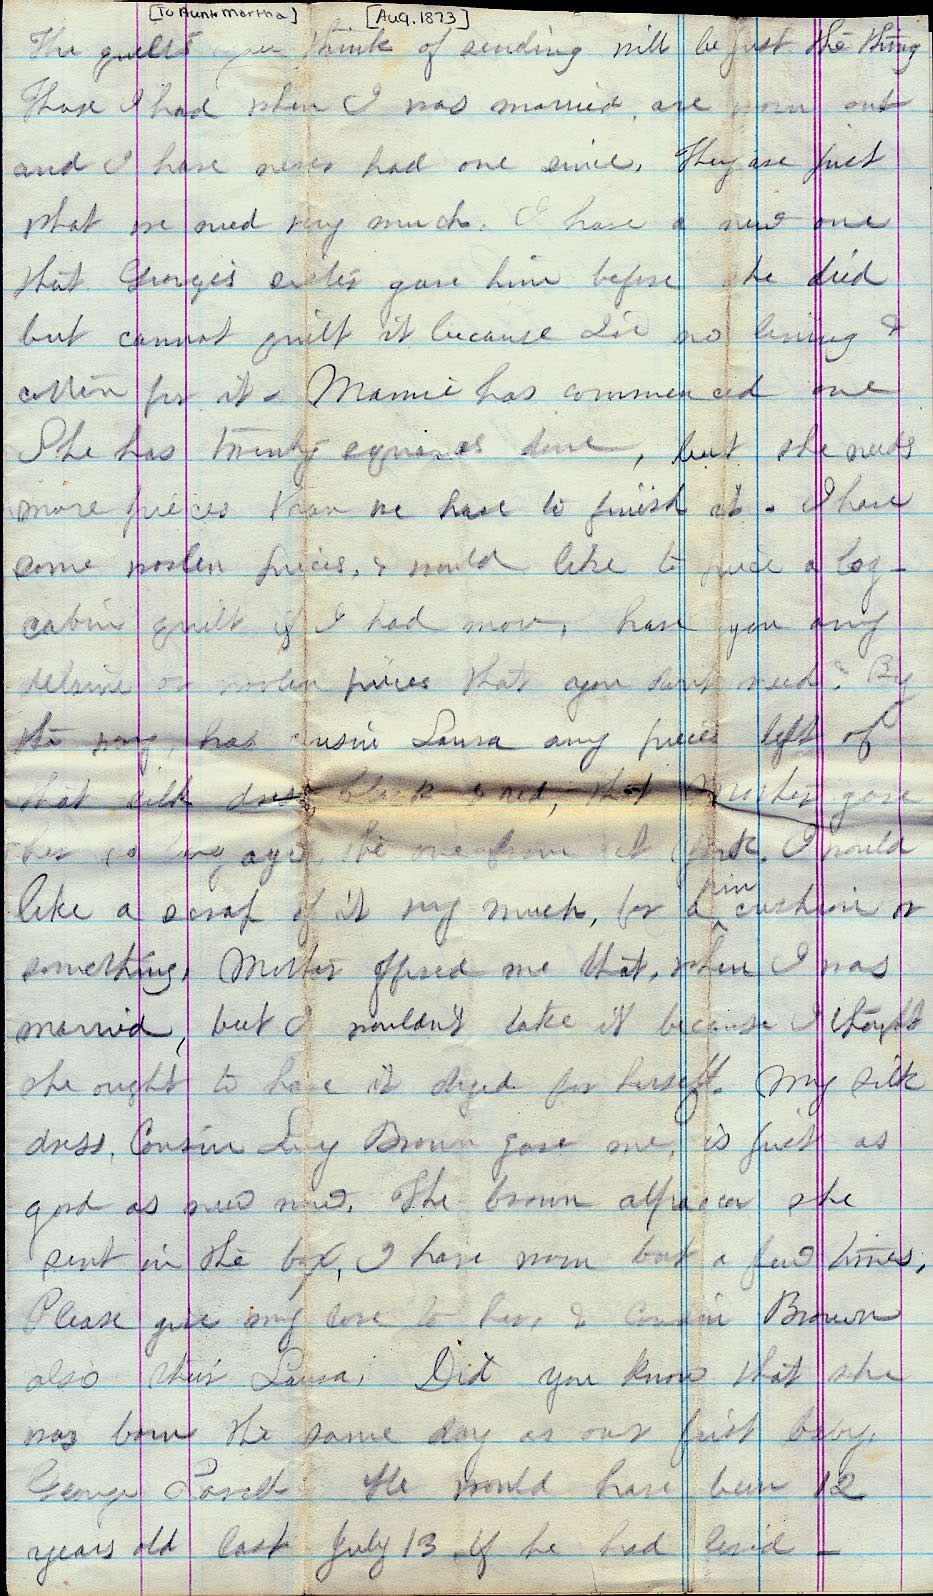 [To Aunt Martha] [Aug. 1873]
The quilts you think of sending will be just the thing
Those I had when I was married, are worn out
and I have never had one since. They are just
what we need very much. I have a new one
that George's sister gave him before she died
but cannot quilt it because I've no lining &
cotton for it. Mamie has commenced one
She has twenty squares done, but she needs
more pieces than we have to finish it. I have
some woolen pieces, & would like to piece a log-
cabin quilt if I had more, have you any
delaine or woolen pieces that you don't need? By
the way, has cousin Laura any pieces left of
that silk dress black & red, that Mother gave
her so long ago, the one from York. I would
like a scrap of it very much, for a pin cushion or
something, Mother offered me that, when I was
married, but I wouldn't take it because I thought
she ought to have it dyed for herself. My silk
dress, Cousin Brown gave me, is just as
good as new now. The brown alpacca she
sent in the box, I have worn but a few times,
Please give my love to her, & Cousin Brown
also their Laura. Did you know that she
was born the same day as our first baby,
George He would have been 12
years old last July 13 if he had lived –